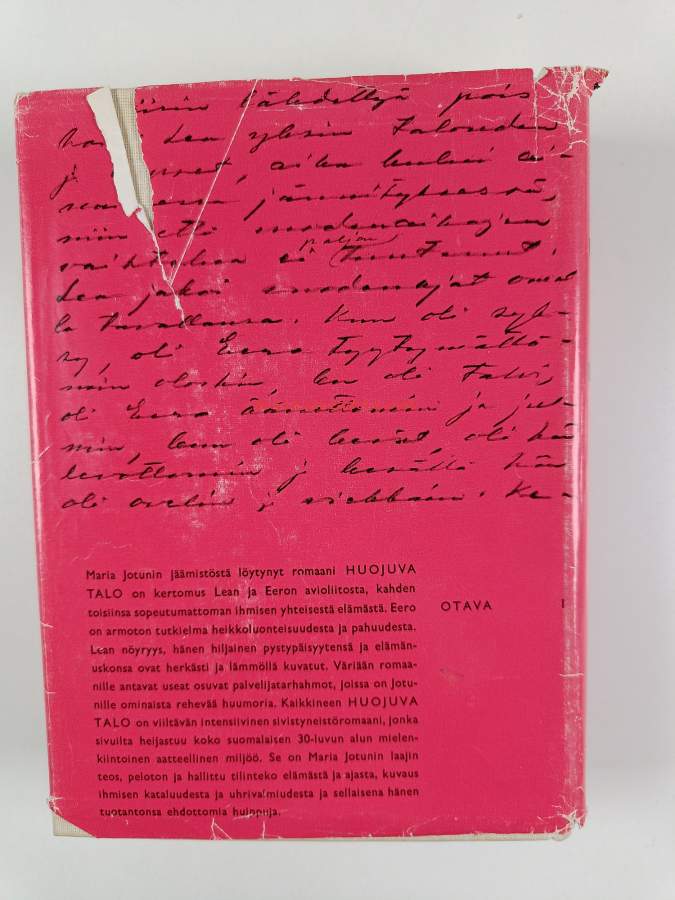 pois
Lea yksin talouden
jännityksessä,
niin että vuodenaikojen
paljon
vaihtelua ei tuntenut.
Lea jakoi vuodenajat omal-
la tavallansa. Kun oli syk-
sy, oli Eero tyytymättö-
min oloihin, kun oli talvi,
oli Eero äänettömin ja jut-
min, kun oli kevät, oli hän
levottomin ja kesällä hän
oli ovelin ja viekkain. Ke-
Maria Jotunin jäämistöstä löytynyt romaani HUOJUVA
TALO on kertomus Lean ja Eeron avioliitosta, kahden
toisiinsa sopeutumattoman ihmisen yhteisestä elämästä. Eero
on armoton tutkielma heikkoluonteisuudesta ja pahuudesta.
Lean nöyryys, hänen hiljainen pystypäisyytensä ja elämän-
uskonsa ovat herkästi ja lämmöllä kuvatut. Väriään romaa-
nille antavat useat osuvat palvelijatarhahmot, joissa on Jotu-
nille ominaista rehevää huumoria. Kaikkineen HUOJUVA
TALO on viiltävän intensiivinen sivistyneistöromaani, jonka
sivuilta heijastuu koko suomalaisen 30-luvun alun mielen-
kiintoinen aatteellinen miljöö. Se on Maria Jotunin laajin
teos, peloton ja hallittu tilinteko elämästä ja ajasta, kuvaus
ihmisen kataluudesta ja uhrivalmiudesta ja sellaisena hänen
tuotantonsa ehdottomia huippuja.
OTAVA